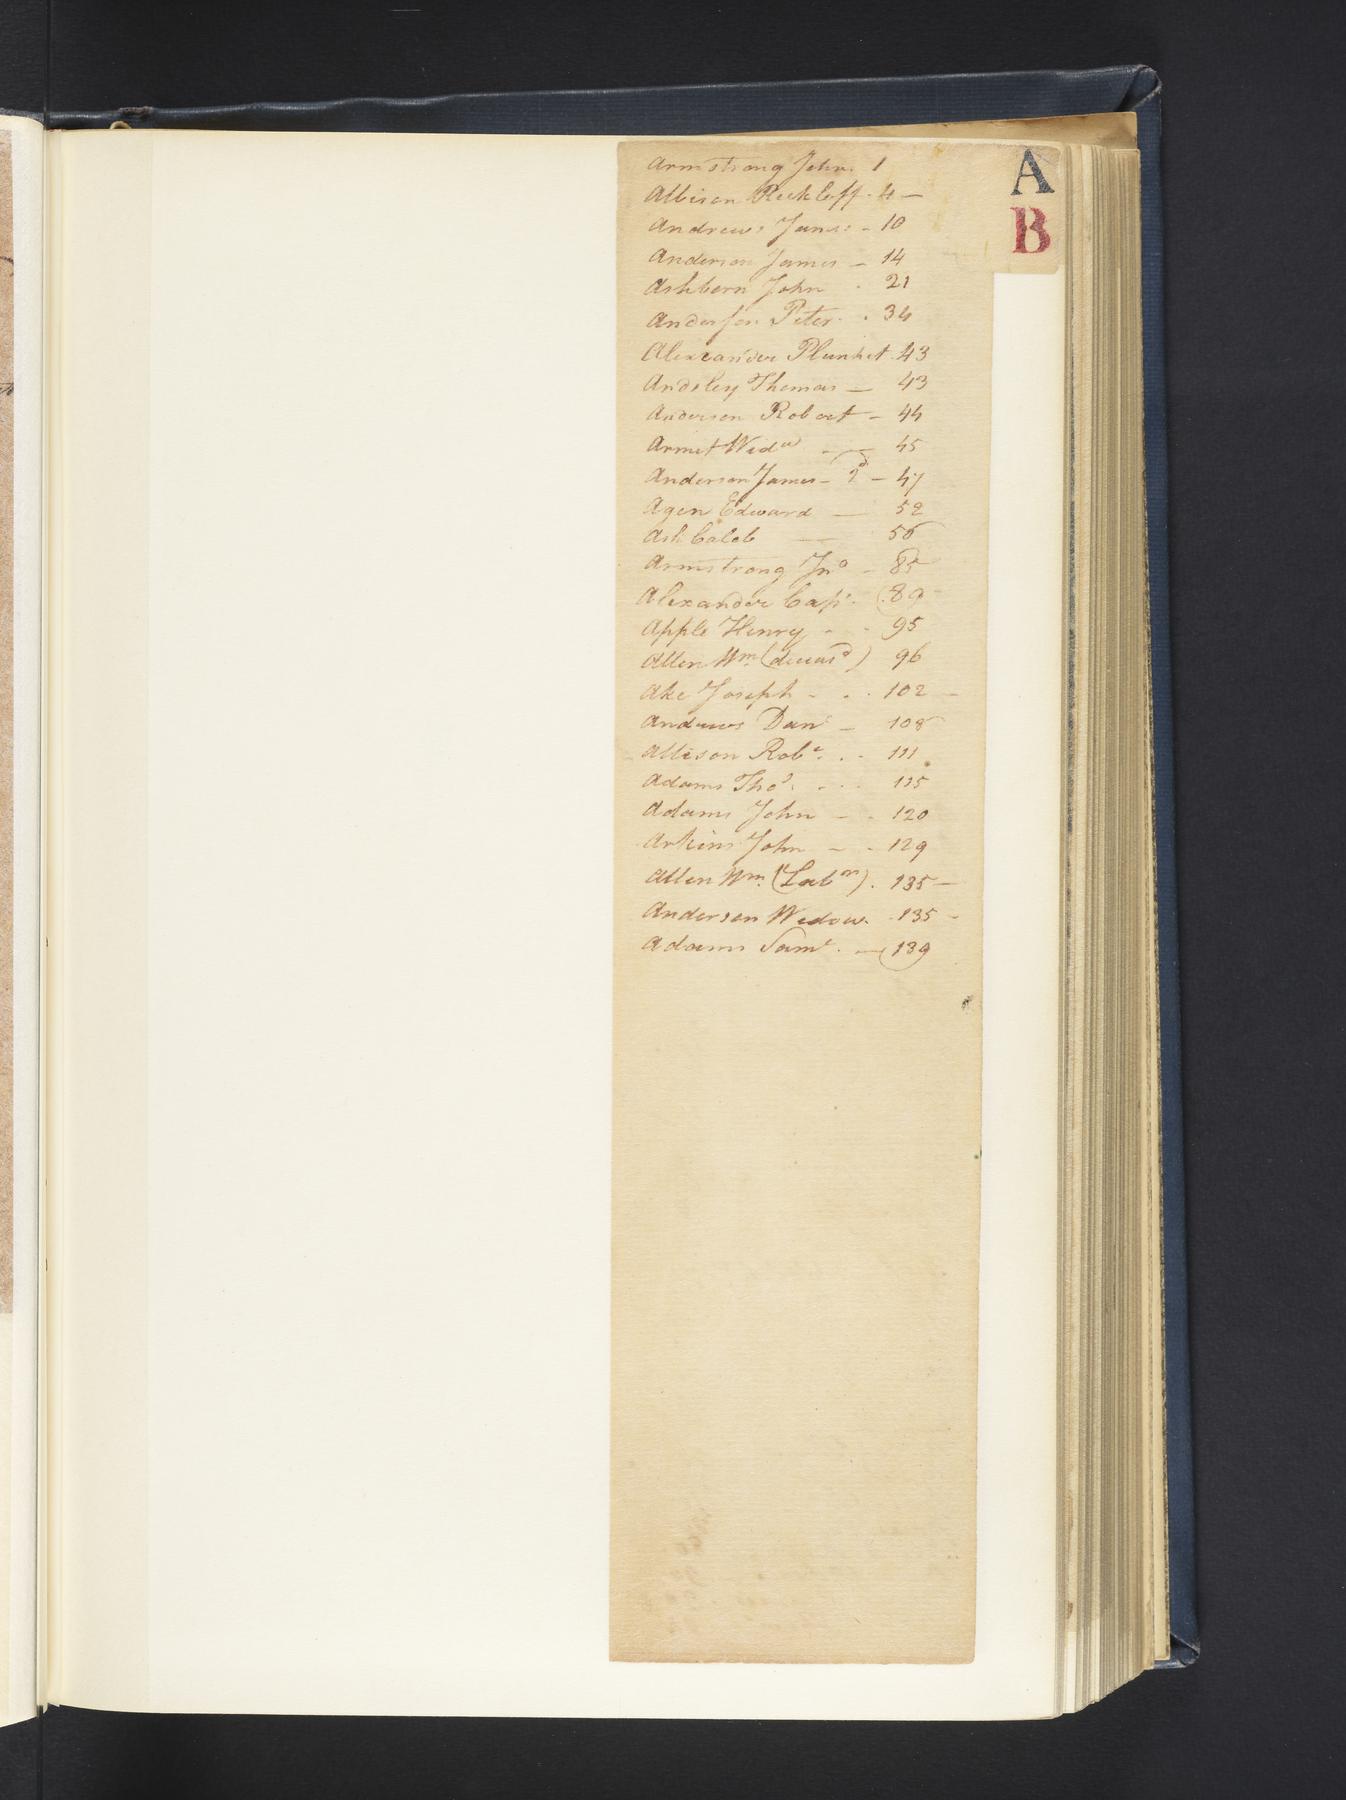 A
B
Armstrong John. 1
Allison Reckleff. 4 —
Andrews James - 10
Anderson James — 14
Ashborn John . 21
Anderson Peter . 34
Alexander Plunket . 43
Andsley Thomas — 43
Anderson Robert — 44
Armit Widw — 45
Anderson James — 2d — 47
Agen Edward — 52
Ash Caleb — 56
Armstrong Jno — 85
Alexander Capt. 89
Apple Henry - - 95
Allen Wm (deceasd) 96
Ake Joseph - . . 102 —
Andrews Danl — 108
Allison Robt . . - 111
Adams Thos . . . 115
Adams John — . 120
Arkins John — . 129
Allen Wm (Labr) . 135 —
Anderson Widow . 135 -
Adams Saml. — 139